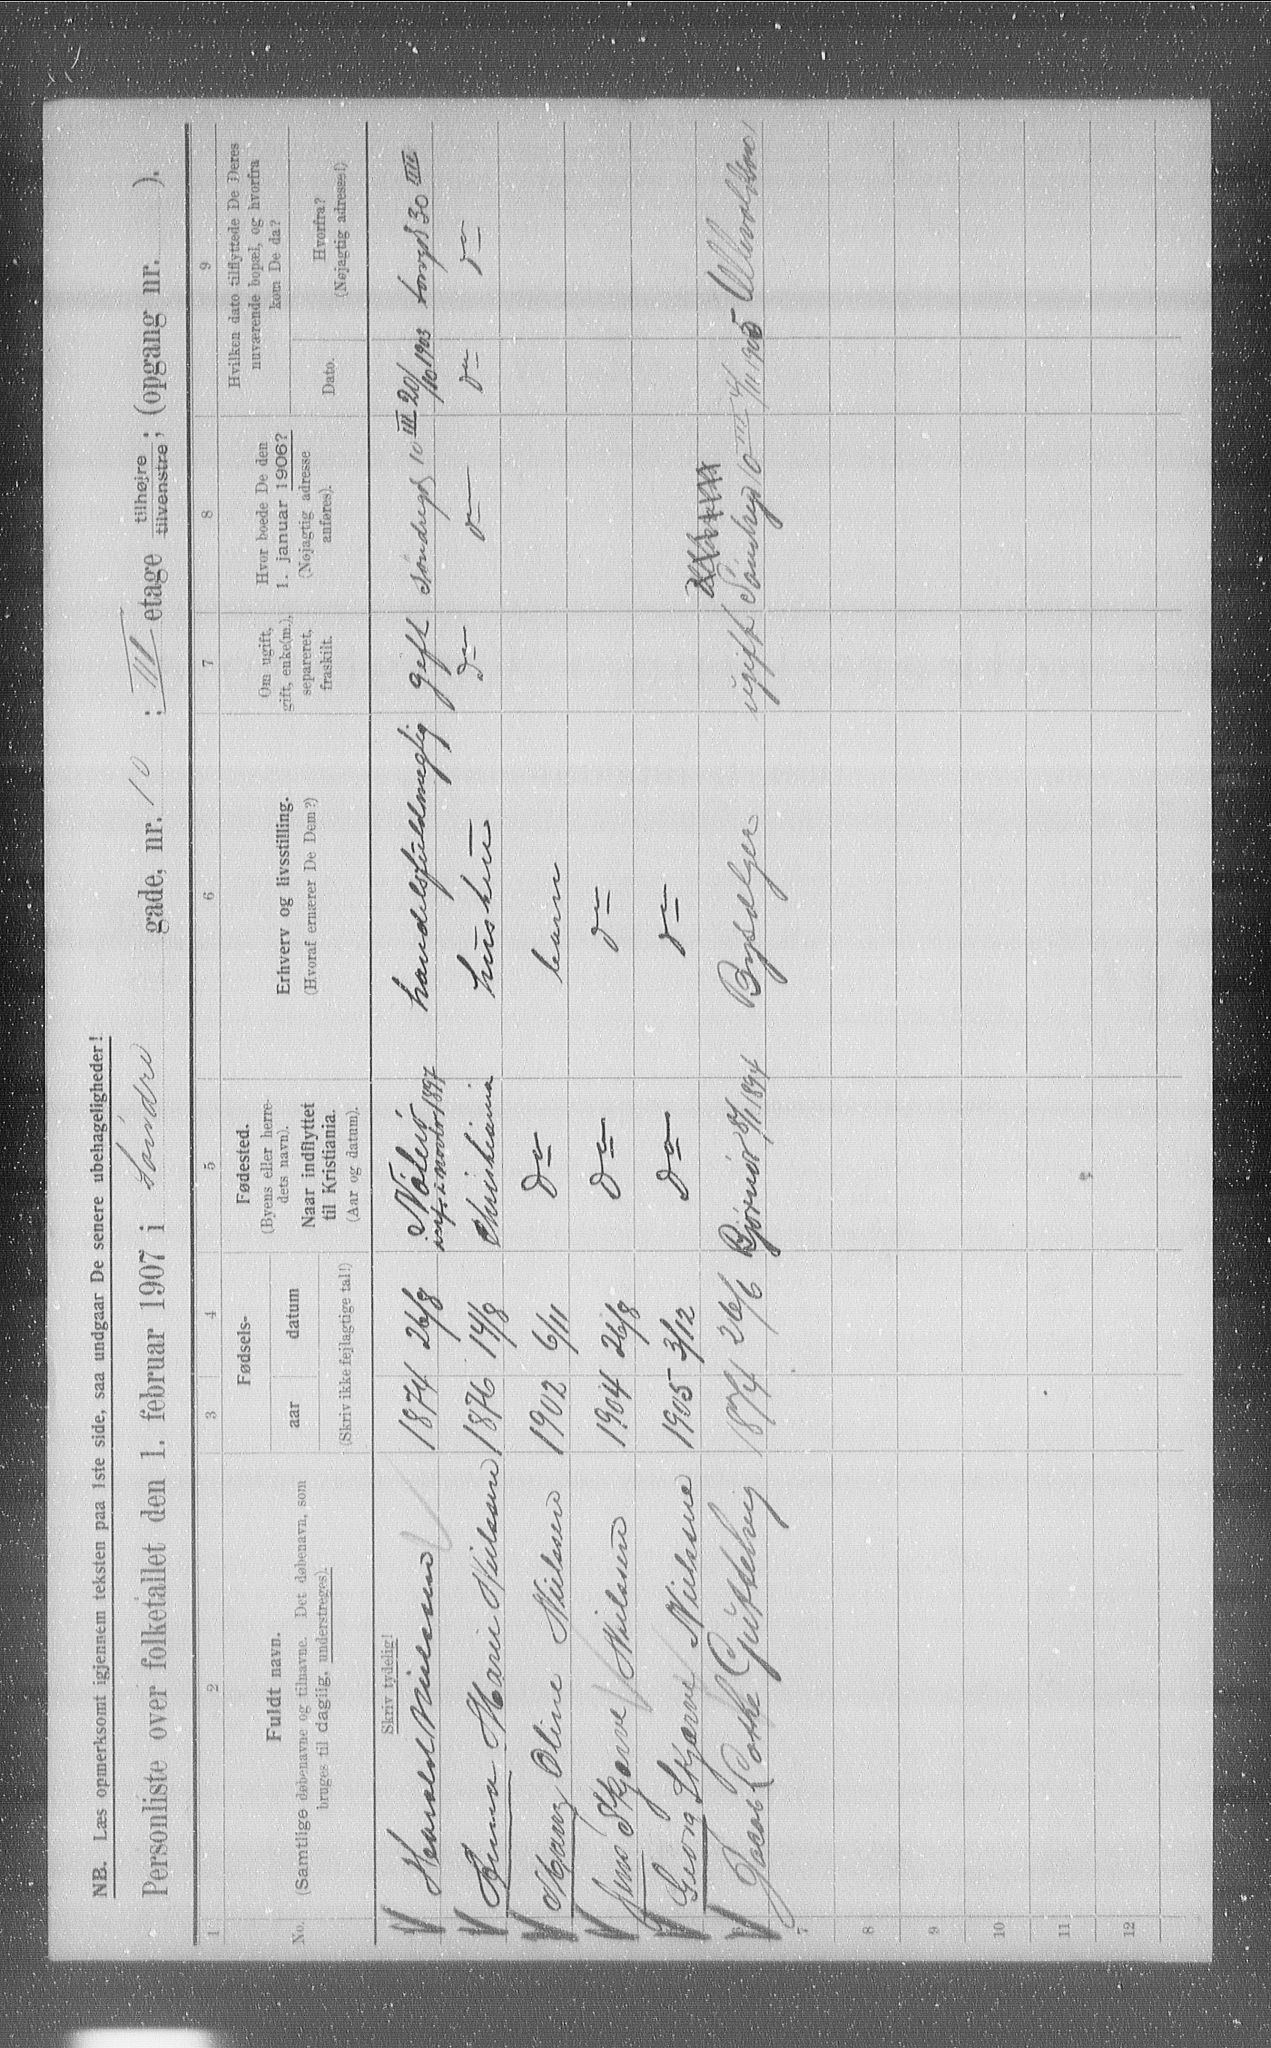 NB. Læs opmerksomt igjennem teksten paa 1ste side, saa undgaar De senere ubehageligheder!
Personliste over folketallet den 1. februar 1907 i Søndre gade, nr. 10 ; III etage tilhøire tilvenstre; (opgang nr. ).
1 2 3 4 5 6 7 8 9
No. Fuldt navn. (Samtlige døbenavne og tilnavne. Det døbenavn, som bruges til daglig, understreges).
Fødsels- aar datum (Skriv ikke fejlagtige tal!)
Fødested. (Byens eller herredets navn). Naar indflyttet til Kristiania. (Aar og datum).
Erhverv og livsstilling. (Hvoraf ernærer De Dem?)
Om ugift, gift, enke(m.), separeret, fraskilt.
Hvor boede De den 1. januar 1906? (Nøjagtig adresse anføres).
Hvilken dato tilflyttede De Deres nuværende bopæl, og hvorfra kom De da?
Dato. Hvorfra? (Nøjagtig adresse!)
Skriv tydelig!
Harald Nielssen 1874 26/8 1897 gift Søndregd 10 III 20/10 1903 30 III
Anna Marie Nielssen 1876 14/8 Christiania hustru do do do do
Oline Nielssen 1902 6/11 Do barn
Jens Nielssen 1904 26/8 Do do
Georg Nielssen 1905 3/12 Do do
Jacob 1874 26/6 1894 ugift 10 1905
7
8
9
10
11
12